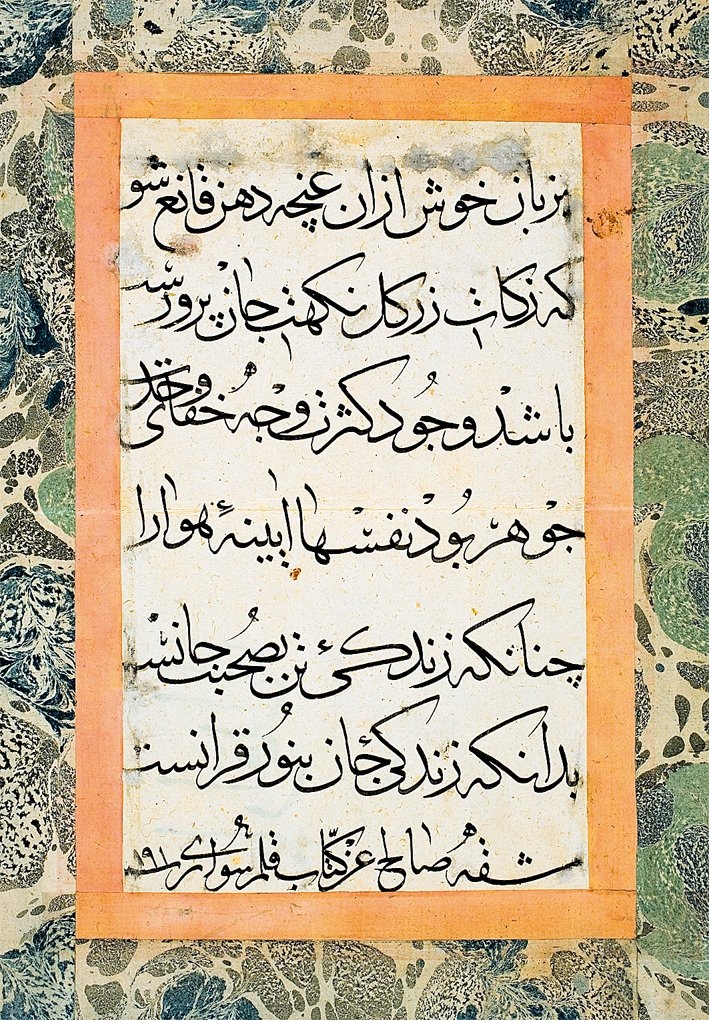 بزبان خوش ازان غنچه دهن قانع شو
که زکات زر گل نکهت جان پرور
باشد وجود کثرت وجه خفا
جوهر بود نفسها ایینهٔ هوا را
چنانکه زندگیٔ تن بصحبت جانست
بدانکه زندگی جان بنور قرانست
مشقه صالح عن کتاب قلم